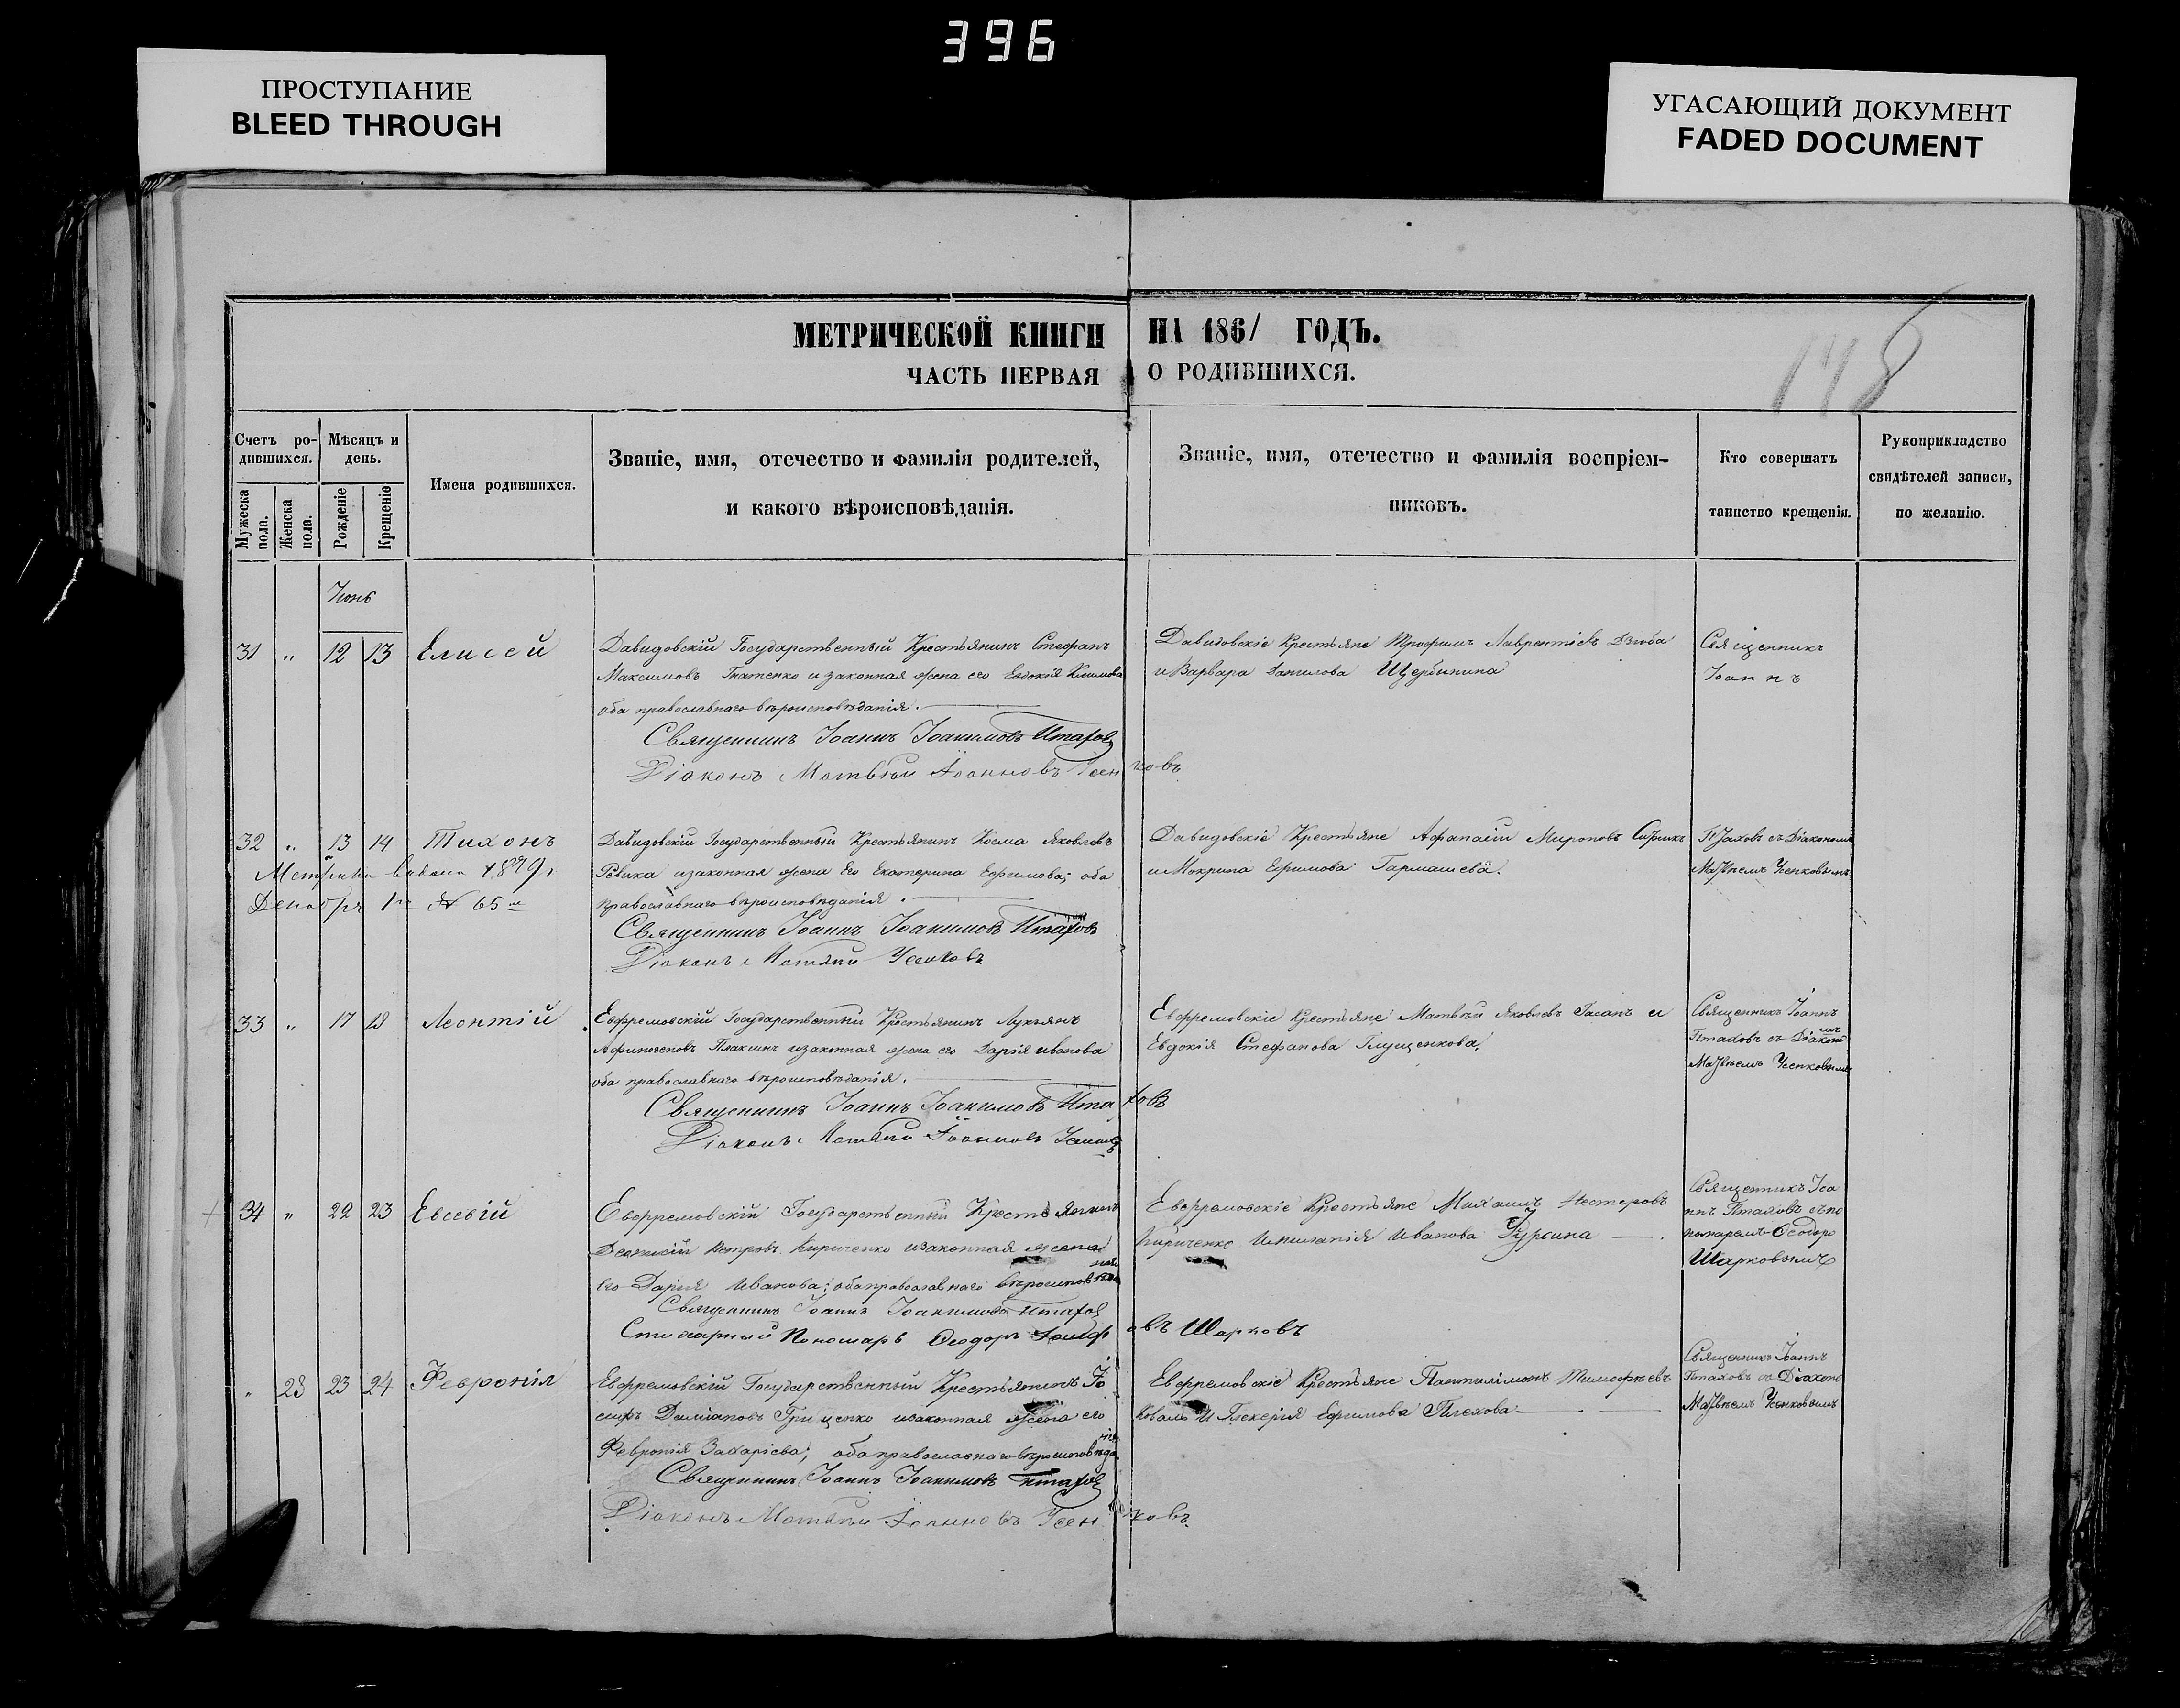 396
ПРОСТУПАНИЕ
BLEED THROUGH
УГАСАЮЩИЙ ДОКУМЕНТ
FADED DOCUMENT
МЕТРИЧЕСКОЙ КНИГИ НА 1861 ГОДЪ.
ЧАСТЬ ПЕРВАЯ О РОДИВШИХСЯ.
148
Счетъ ро-
дившихся.
Мужеска пола.
Женска пола.
Мѣсяцъ и
день.
Рожденіе
Крещеніе
Имена родившихся.
Званіе, имя, отечество и фамилія родителей,
и какого вѣроисповѣданія.
Званіе, имя, отечество и фамилія воспріем-
никовъ.
Кто совершатъ
таинство крещенія.
Рукоприкладство
свидѣтелей записи,
по желанію.
Іюнь
31 " 12 13 Елисей
Давидовскій Государственный Крестьянинъ Стефанъ
Максимовъ Гнатенко и законная жена его Евдокія Климова
оба православнаго вѣроисповѣданія.
Священникъ Іоаннъ Іоакимовъ Птаховъ
Діаконъ Матвѣй Іоанновъ Усенковъ
Давидовскіе Крестьяне Трофимъ Лаврентіевъ Дзюба
и Варвара Данилова Щербинина
Священникъ
Іоаннъ
32 " 13 14 Тихонъ
Метрика видана 1879,
Декабря 1го № 65
Давидовскій Государственный Крестьянинъ Косма Яковлевъ
Ревика и законная жена Его Екатерина Ефимова; оба
православнаго вѣроисповѣданія.
Священникъ Іоаннъ Іоакимовъ Птаховъ
Діаконъ Матвѣй Усенковъ
Давидовскіе Крестьяне Афанасій Мироновъ
и Мокрина Ефимова Гармашева.
Птаховъ съ Діакономъ
Матвѣемъ Усенковымъ
33 " 17 18 Леонтій
Евфремовскій Государственный Крестьянинъ Лукьянъ
Афиногеновъ Плаксинъ и законная жена его Дарія Иванова
оба православнаго вѣроисповѣданія.
Священникъ Іоаннъ Іоакимовъ Птаховъ
Діаконъ Матвѣй Іоанновъ Усенковъ
Евфремовскіе Крестьяне Матвѣй Яковлевъ и
Евдокія Стефанова Глущенкова,
Священникъ Іоаннъ
Птаховъ съ Діакономъ
Матвѣемъ Усенковымъ
34 " 22 23 Евсевій
Евфремовскій Государственный Крестьянинъ
Петровъ Кириченко и законная жена
его Дарія Иванова; оба православнаго вѣроисповѣданія
Священникъ Іоаннъ Іоакимовъ Птаховъ
Стихарный Пономарь Ѳеодоръ Шарковъ
Евфремовскіе Крестьяне Михаилъ Нестеровъ
Кириченко и Меланія Иванова
Священникъ Іоа
ннъ Птаховъ съ по
номаремъ Ѳеодоро
Шарковымъ
" 28 23 24 Февронія
Евфремовскій Государственный Крестьянинъ Іо
сифъ Даміановъ Гриценко и законная жена его
Февронія Захаріева; оба православнаго вѣроисповѣданія
Священникъ Іоаннъ Іоакимовъ Птаховъ
Діаконъ Матвѣй Іоанновъ Усенковъ
Евфремовскіе Крестьяне Пантилімонъ Тимофѣевъ
Коваль и Гликерія Ефимова Плехова
Священникъ Іоаннъ
Птаховъ съ Діаконо
Матвѣемъ Усенковымъ